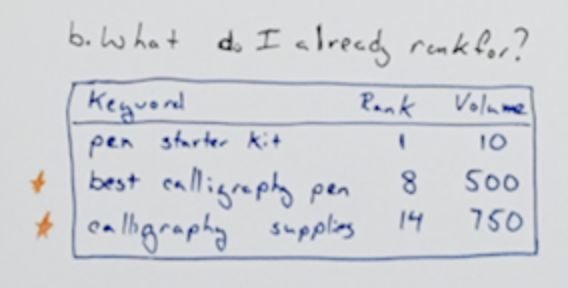 b. What do I already rank for?
Keyword Rank Volume
pen starter kit 1 10
best calligraphy pen 8 500
calligraphy supplies 14 750